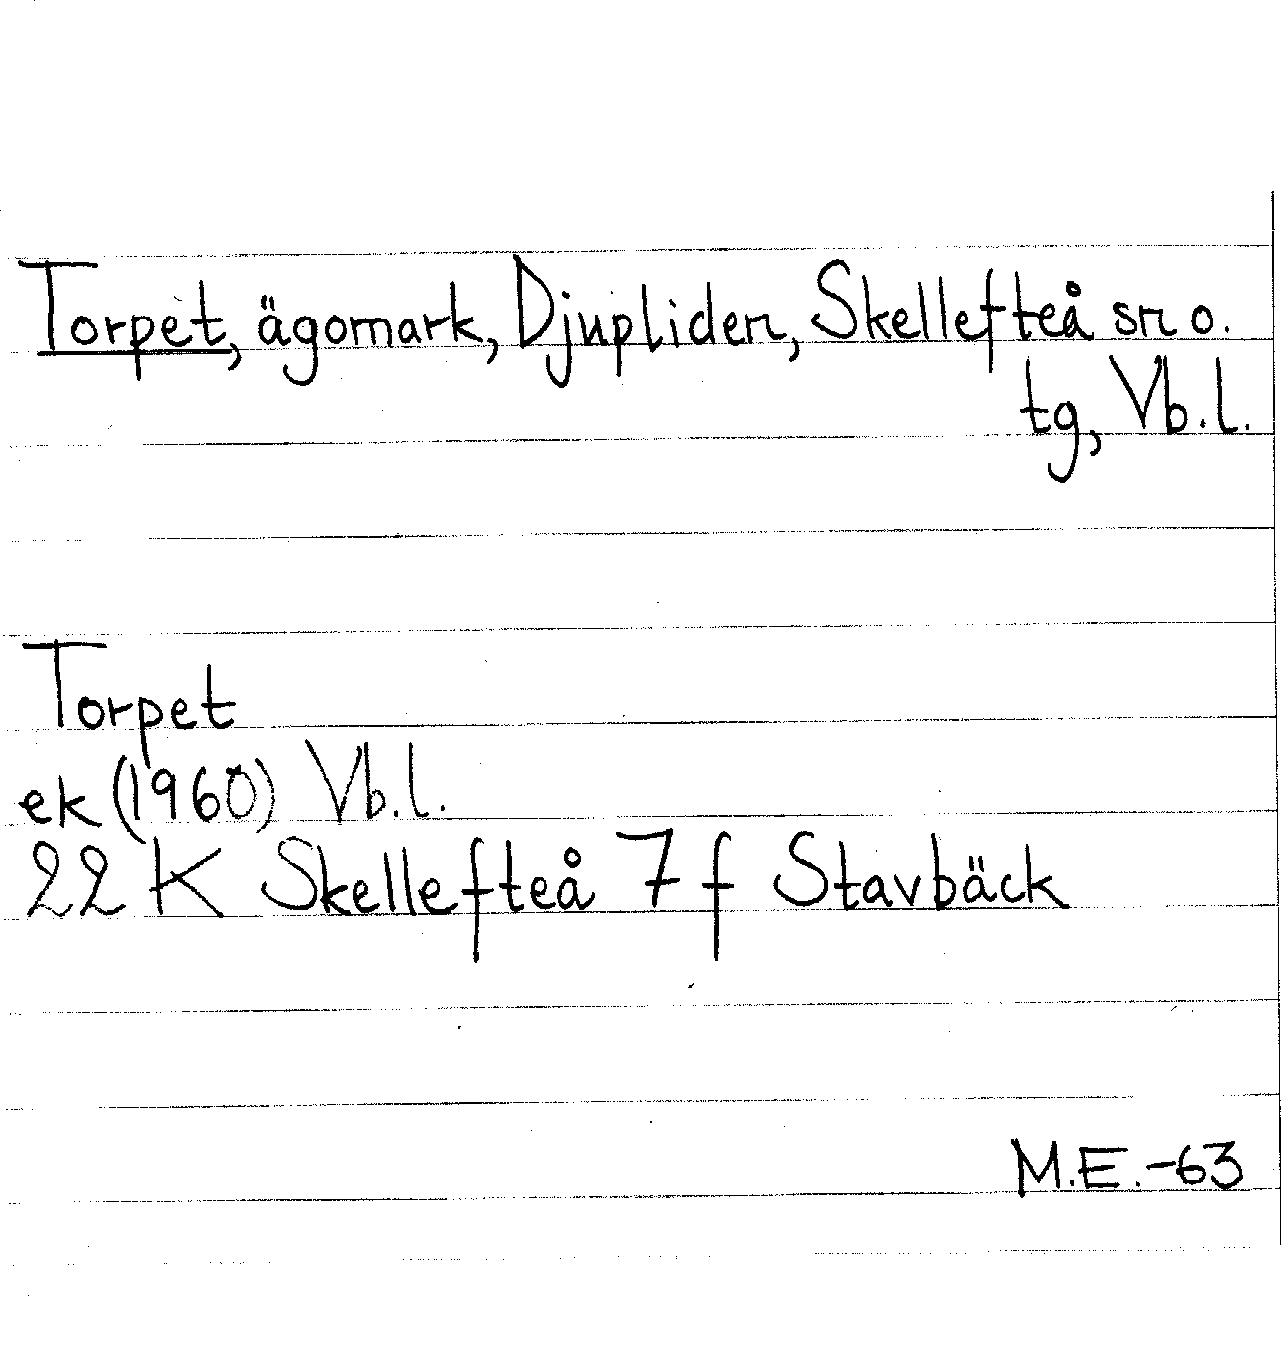 Torpet, ägomark, Djupliden, Skellefteå sn o.
tg, Vb.l.
Torpet
ek (1960) Vb.l.
22 K Skellefteå 7 f Stavbäck
M.E.-63